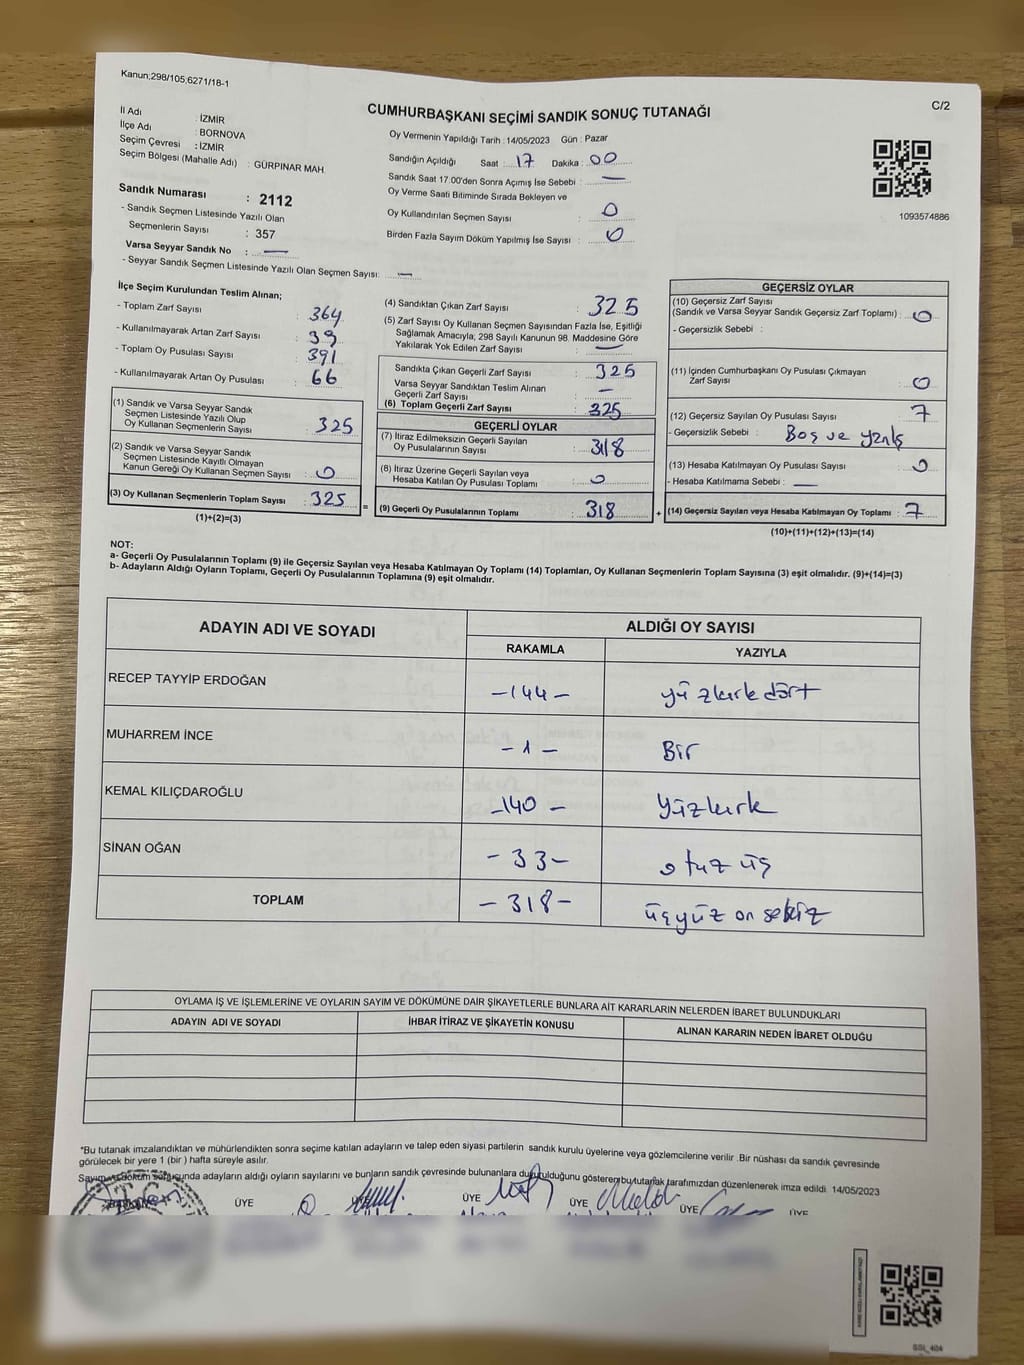 Kanun;298/105,6271/18-1
C/2
CUMHURBAŞKANI SEÇİMİ SANDIK SONUÇ TUTANAĞI
İl Adı : İZMİR
İlçe Adı : BORNOVA
Seçim Çevresi : İZMİR
Seçim Bölgesi (Mahalle Adı) : GÜRPINAR MAH.
Sandık Numarası : 2112
- Sandık Seçmen Listesinde Yazılı Olan
Seçmenlerin Sayısı : 357
Varsa Seyyar Sandık No : —
- Seyyar Sandık Seçmen Listesinde Yazılı Olan Seçmen Sayısı: —
Oy Vermenin Yapıldığı Tarih : 14/05/2023 Gün : Pazar
Sandığın Açıldığı Saat : 17 Dakika : 00
Sandık Saat 17.00'den Sonra Açımış İse Sebebi : —
Oy Verme Saati Bitiminde Sırada Bekleyen ve
Oy Kullandırılan Seçmen Sayısı : 0
Birden Fazla Sayım Döküm Yapılmış İse Sayısı : 0
1093574886
İlçe Seçim Kurulundan Teslim Alınan;
- Toplam Zarf Sayısı : 364
- Kullanılmayarak Artan Zarf Sayısı : 39
- Toplam Oy Pusulası Sayısı : 391
- Kullanılmayarak Artan Oy Pusulası : 66
(1) Sandık ve Varsa Seyyar Sandık
Seçmen Listesinde Yazılı Olup
Oy Kullanan Seçmenlerin Sayısı : 325
(2) Sandık ve Varsa Seyyar Sandık
Seçmen Listesinde Kayıtlı Olmayan
Kanun Gereği Oy Kullanan Seçmen Sayısı : 0
(3) Oy Kullanan Seçmenlerin Toplam Sayısı : 325 =
(1)+(2)=(3)
(4) Sandıktan Çıkan Zarf Sayısı : 325
(5) Zarf Sayısı Oy Kullanan Seçmen Sayısından Fazla İse, Eşitliği
Sağlamak Amacıyla; 298 Sayılı Kanunun 98. Maddesine Göre
Yakılarak Yok Edilen Zarf Sayısı : —
Sandıkta Çıkan Geçerli Zarf Sayısı : 325
Varsa Seyyar Sandıktan Teslim Alınan
Geçerli Zarf Sayısı : —
(6) Toplam Geçerli Zarf Sayısı : 325
GEÇERLİ OYLAR
(7) İtiraz Edilmeksizin Geçerli Sayılan
Oy Pusulalarının Sayısı : 318
(8) İtiraz Üzerine Geçerli Sayılan veya
Hesaba Katılan Oy Pusulası Toplamı : 0
(9) Geçerli Oy Pusulalarının Toplamı : 318 +
GEÇERSİZ OYLAR
(10) Geçersiz Zarf Sayısı
(Sandık ve Varsa Seyyar Sandık Geçersiz Zarf Toplamı) : 0
- Geçersizlik Sebebi :
(11) İçinden Cumhurbaşkanı Oy Pusulası Çıkmayan
Zarf Sayısı : 0
(12) Geçersiz Sayılan Oy Pusulası Sayısı : 7
- Geçersizlik Sebebi : Boş ve
(13) Hesaba Katılmayan Oy Pusulası Sayısı : 0
- Hesaba Katılmama Sebebi : —
(14) Geçersiz Sayılan veya Hesaba Katılmayan Oy Toplamı : 7
(10)+(11)+(12)+(13)=(14)
NOT:
a- Geçerli Oy Pusulalarının Toplamı (9) ile Geçersiz Sayılan veya Hesaba Katılmayan Oy Toplamı (14) Toplamları, Oy Kullanan Seçmenlerin Toplam Sayısına (3) eşit olmalıdır. (9)+(14)=(3)
b- Adayların Aldığı Oyların Toplamı, Geçerli Oy Pusulalarının Toplamına (9) eşit olmalıdır.
ADAYIN ADI VE SOYADI
ALDIĞI OY SAYISI
RAKAMLA YAZIYLA
RECEP TAYYİP ERDOĞAN -144- yüzkırkdört
MUHARREM İNCE -1- Bir
KEMAL KILIÇDAROĞLU -140- Yüzkırk
SİNAN OĞAN -33- otuz üç
TOPLAM -318- üçyüz on sekiz
OYLAMA İŞ VE İŞLEMLERİNE VE OYLARIN SAYIM VE DÖKÜMÜNE DAİR ŞİKAYETLERLE BUNLARA AİT KARARLARIN NELERDEN İBARET BULUNDUKLARI
ADAYIN ADI VE SOYADI İHBAR İTİRAZ VE ŞİKAYETİN KONUSU ALINAN KARARIN NEDEN İBARET OLDUĞU
*Bu tutanak imzalandıktan ve mühürlendikten sonra seçime katılan adayların ve talep eden siyasi partilerin sandık kurulu üyelerine veya gözlemcilerine verilir .Bir nüshası da sandık çevresinde
görülecek bir yere 1 (bir ) hafta süreyle asılır.
adayların aldığı oyların sayılarını ve bunların sandık çevresinde bulunanlara duyurulduğunu gösteren bu tutanak tarafımızdan düzenlenerek imza edildi. 14/05/2023
ÜYE ÜYE ÜYE ÜYE ÜYE